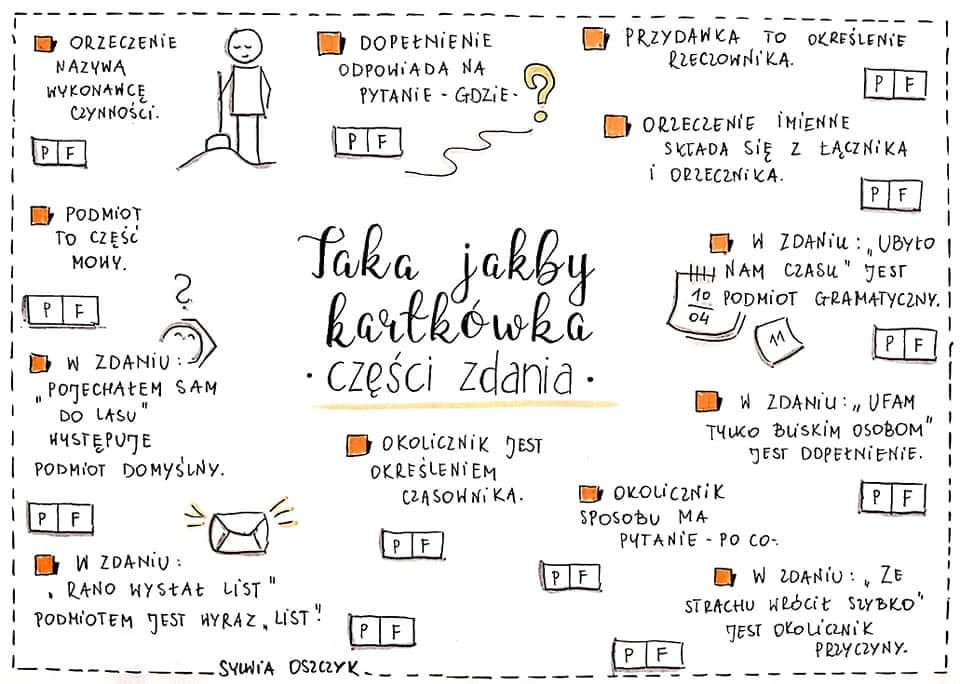 ORZECZENIE
NAZYWA
WYKONAWCĘ
CZYNNOŚCI.
P F
DOPEŁNIENIE
ODPOWIADA NA
PYTANIE - GDZIE-
?
P F
PRZYDAWKA TO OKREŚLENIE
RZECZOWNIKA.
P F
ORZECZENIE IMIENNE
SKŁADA SIĘ Z ŁĄCZNIKA
I ORZECZNIKA.
P F
PODMIOT
TO CZĘŚĆ
MOWY.
P F
?
Taka jakby
kartkówka
· części zdania ·
W ZDANIU: „UBYŁO
NAM CZASU" JEST
PODMIOT GRAMATYCZNY.
10
04
11
P F
W ZDANIU:
„POJECHAŁEM SAM
DO LASU"
WYSTĘPUJE
PODMIOT DOMYŚLNY.
P F
W ZDANIU: „UFAM
TYLKO BLISKIM OSOBOM"
JEST DOPEŁNIENIE.
P F
OKOLICZNIK JEST
OKREŚLENIEM
CZASOWNIKA.
P F
OKOLICZNIK
SPOSOBU MA
PYTANIE - PO CO-.
P F
W ZDANIU:
„RANO WYSŁAŁ LIST"
PODMIOTEM JEST WYRAZ „LIST".
P F
W ZDANIU: „ZE
STRACHU WRÓCIŁ SZYBKO"
JEST OKOLICZNIK
PRZYCZYNY.
P F
SYLWIA OSZCZYK